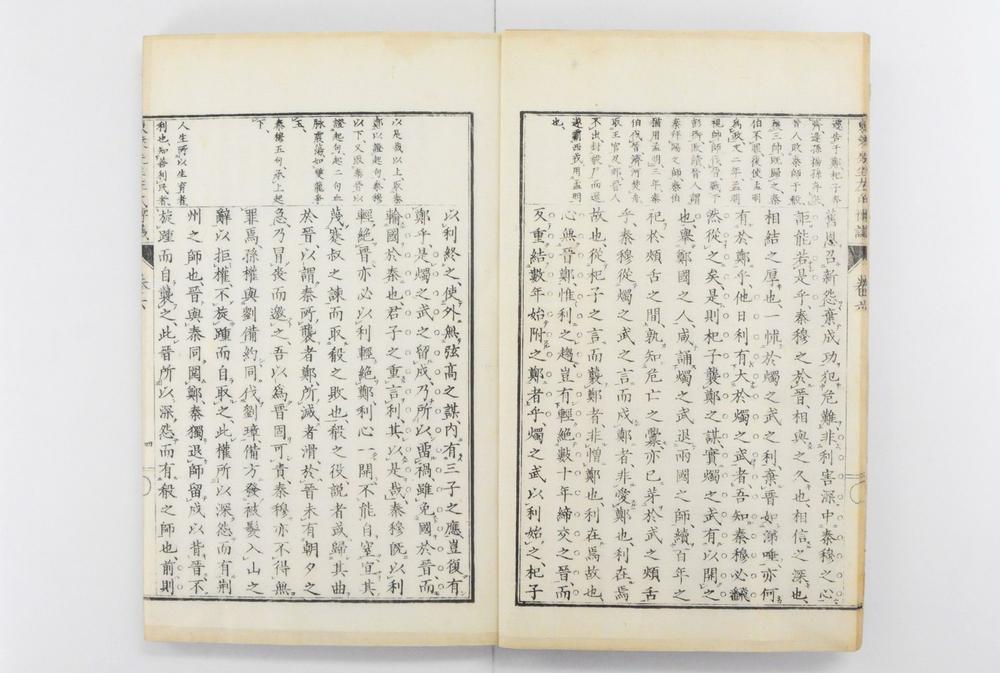 逢告于鄭杞子奔
齊逢孫揚孫奔宋
晉人敗秦師于殽
獲三帥既歸之秦
伯不罷復使孟明
為政文二年孟明
視帥師伐晉戰于
彭衙敗績晉人謂
秦拜賜之師秦伯
猶用孟明三年秦
伯伐晉濟河焚舟
取王官及郊晉人
不出封殽尸而還
遂霸西戎用孟明
也
舊恩召新怨棄成功犯危難非利害深中秦穆之心
詎能若是乎秦穆之於晉相與之久也相信之深也
相結之厚也一怵於燭之武之利棄晉如涕唾亦何
有於鄭乎他日利有大於燭之武者吾知秦穆必翻
然從之矣是則杞子襲鄭之謀實燭之武有以開之
也舉鄭國之人咸誦燭之武退兩國之師續百年之
祀於頰舌之間孰知危亡之釁亦已芽於武之頰舌
乎秦穆從燭之武之言而戍鄭者非愛鄭也利在焉
故也從杞子之言而襲鄭者非憎鄭也利在焉故也
心無晉鄭惟利之趨豈有輕絕數十年締交之晉而
反重結數年始附之鄭者乎燭之武以利始之杞子
以是哉以上取秦
鄭以證起句秦穆
以下又取秦晉以
證起句起二句血
脉震蕩如雙龍爭
玉
秦穆五句承上起
下
人生所以生育者
利也知善利民者
以利終之使外無弦高之謀內有三子之應豈復有
鄭乎是燭之武之留戍乃所以留禍雖免國於晉而
輸國於秦也君子之重言利其以是哉秦穆旣以利
輕絕晉亦必以利輕絕鄭利心一開不能自窒宜其
蔑蹇叔之諫而取殽之敗也殽之役說者或歸其曲
於晉以謂秦所襲者鄭所滅者滑於晉未有朝夕之
急乃冒喪而邀之吾以為晉固可責秦穆亦不得無
罪焉孫權與劉備約同伐劉璋備方發被髮入山之
辭以拒權不旋踵而自取之此權所以深怨而有荊
州之師也晉與秦同圍鄭秦獨退師留戍以昔晉不
旋踵而自襲之此晉所以深怨而有殽之師也前則
四